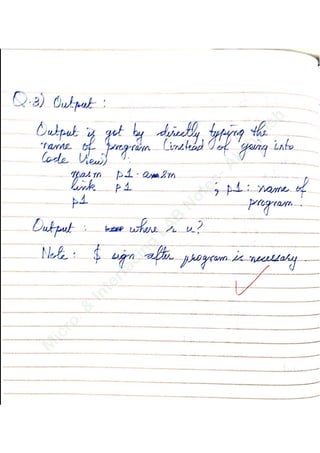 Q.3) Output :
Output is got by directly typing the
name of program (instead of going into
Code View) :
masm p1.asm
link p1 ; p1 : name of
p1 program.
Output : where r u?
Note : $ sign after program is necessary.